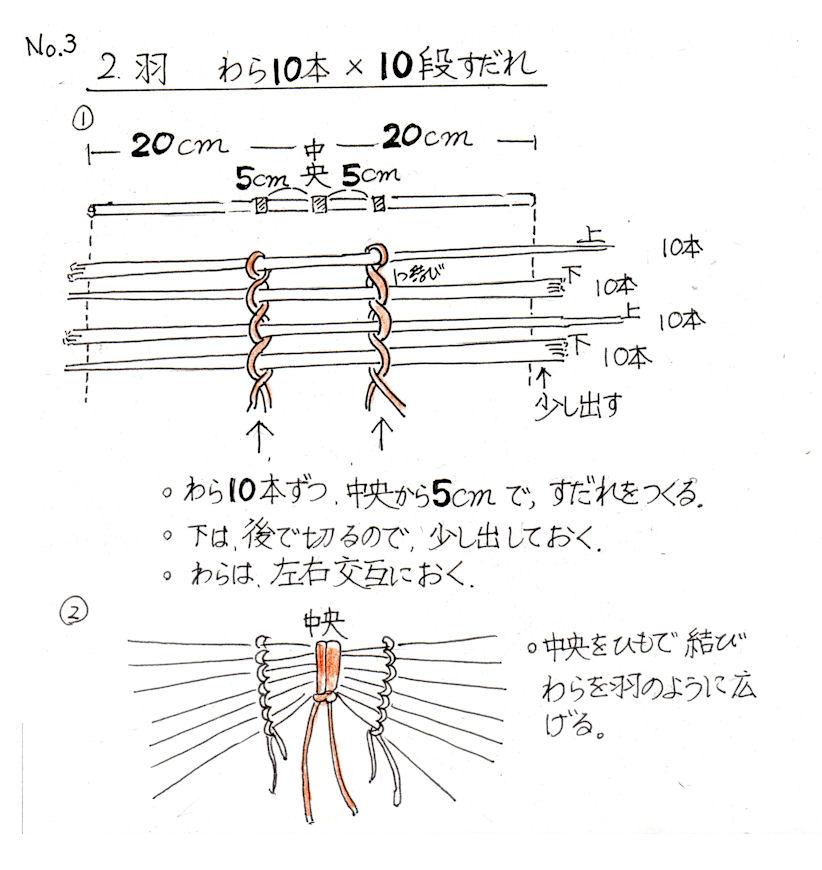 No.3
2. 羽 わら10本 × 10段すだれ
①
20cm 中央 20cm
5cm 5cm
上 10本
1つ結び
下 10本
上 10本
下 10本
少し出す
○ わら10本ずつ、中央から5cmで、すだれをつくる.
○ 下は、後で切るので、少し出しておく.
○ わらは、左右交互におく.
②
中央
○ 中央をひもで結び
わらを羽のように広
げる。